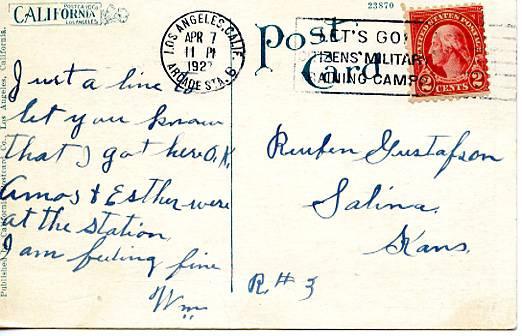 POSTCARD CO
CALIFORNIA
LOS ANGELES
23870
Post Card
LOS ANGELES, CALIF.
APR 7
11 PM
192
ARCADE STA. B
LET'S GO
CITIZENS' MILITARY
TRAINING CAMP
UNITED STATES POSTAGE
2 CENTS 2
Just a line to
let you know
that I got here O.K.
Amos & Esther were
at the station.
I am feeling fine
Wm
Reuben Gustafson
Salina,
Kans.
R.#3
Published by California Postcard Co., Los Angeles, California.